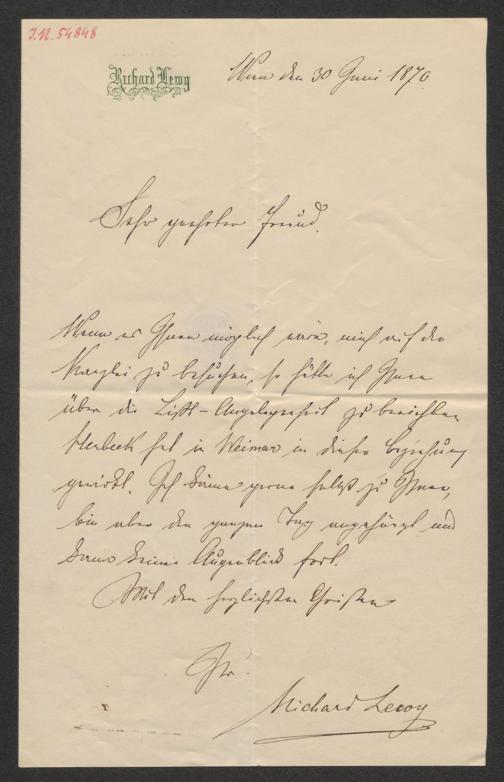 I.N. 54848
Richard Lewy
Wien den 30 Juni 1870
Sehr geehrter Freund.
Wenn es Ihnen möglich wäre, mich auf der
Kanzlei zu besuchen, so hätte ich Ihnen
über die Liszt-Angelegenheit zu berichten
Herbeck hat in Weimar in dieser Beziehung
gewirkt. Ich käme gerne selbst zu Ihnen,
bin aber den ganzen Tag angehängt und
kann keinen Augenblick fort.
Mit den herzlichsten Grüßen
Ihr
Richard Lewy